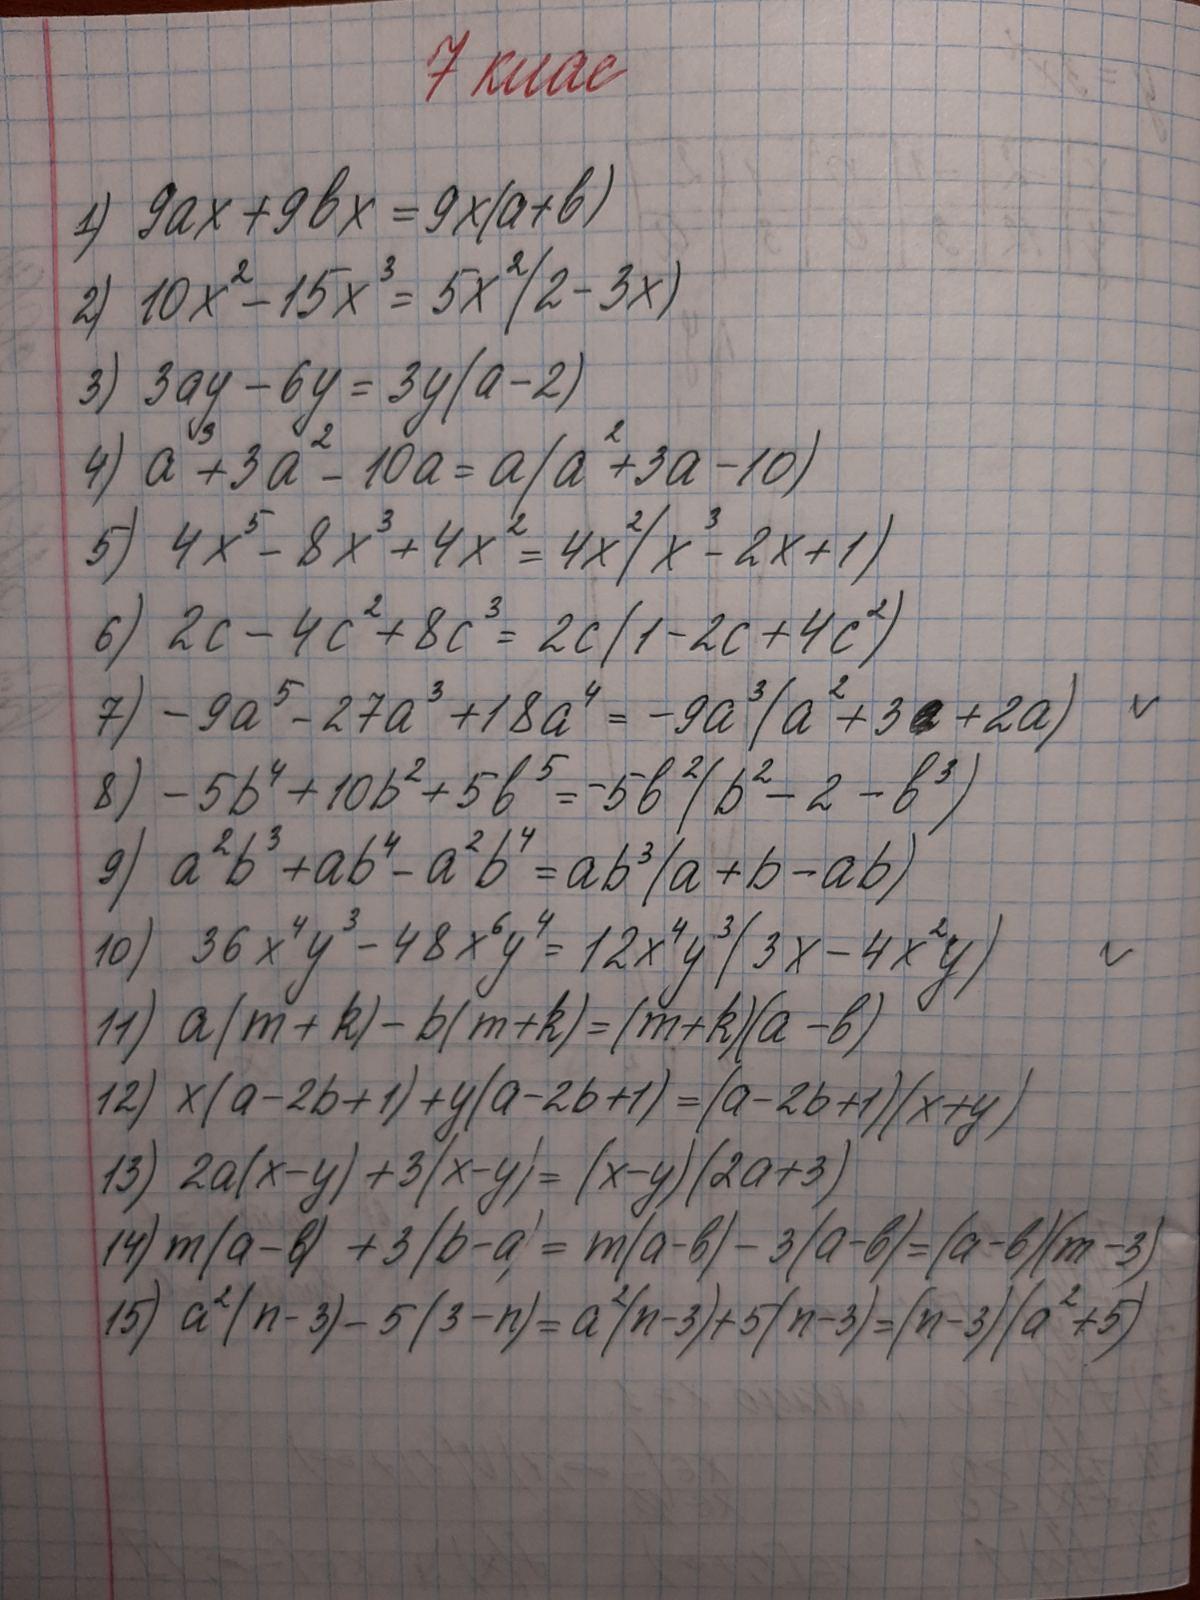 7 клас
1) 9ax + 9bx = 9x(a+b)
2) 10x² - 15x³ = 5x²(2 - 3x)
3) 3ay - 6y = 3y(a - 2)
4) a³ + 3a² - 10a = a(a² + 3a - 10)
5) 4x⁵ - 8x³ + 4x² = 4x²(x³ - 2x + 1)
6) 2c - 4c² + 8c³ = 2c(1 - 2c + 4c²)
7) -9a⁵ - 27a³ + 18a⁴ = -9a³(a² + 3 + 2a) v
8) -5b⁴ + 10b² + 5b⁵ = -5b²(b² - 2 - b³)
9) a²b³ + ab⁴ - a²b⁴ = ab³(a + b - ab)
10) 36x⁴y³ - 48x⁶y⁴ = 12x⁴y³(3x - 4x²y) v
11) a(m + k) - b(m + k) = (m + k)(a - b)
12) x(a - 2b + 1) + y(a - 2b + 1) = (a - 2b + 1)(x + y)
13) 2a(x - y) + 3(x - y) = (x - y)(2a + 3)
14) m(a - b) + 3(b - a) = m(a - b) - 3(a - b) = (a - b)(m - 3)
15) a²(n - 3) - 5(3 - n) = a²(n - 3) + 5(n - 3) = (n - 3)(a² + 5)